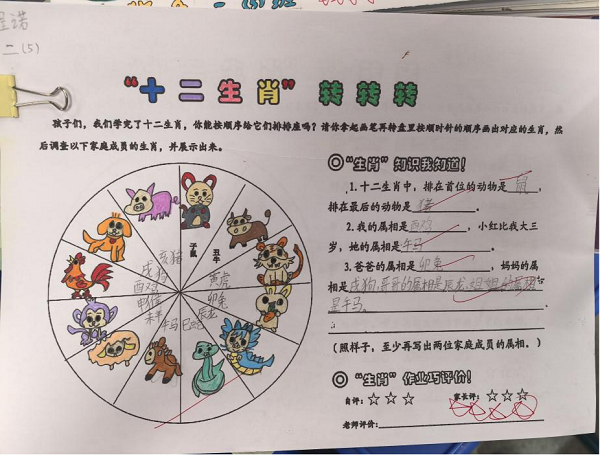 二(5)
“十二生肖”转转转
孩子们，我们学完了十二生肖，你能按顺序给它们排排座吗？请你拿起画笔再转盘里按顺时针的顺序画出对应的生肖，然
后调查以下家庭成员的生肖，并展示出来。
◎“生肖”知识我知道！
1.十二生肖中，排在首位的动物是鼠，
排在最后的动物是猪。
2.我的属相是酉鸡，小红比我大三
岁，她的属相是午马。
3.爸爸的属相是卯兔，妈妈的属
相是戌狗,哥哥的属相是辰龙,姐姐
是午马。
(照样子，至少再写出两位家庭成员的属相。)
◎“生肖”作业巧评价！
自评：☆☆☆ 家长评：☆☆☆
老师评价：
子鼠
丑牛
寅虎
卯兔
辰龙
巳蛇
午马
未羊
申猴
酉鸡
戌狗
亥猪